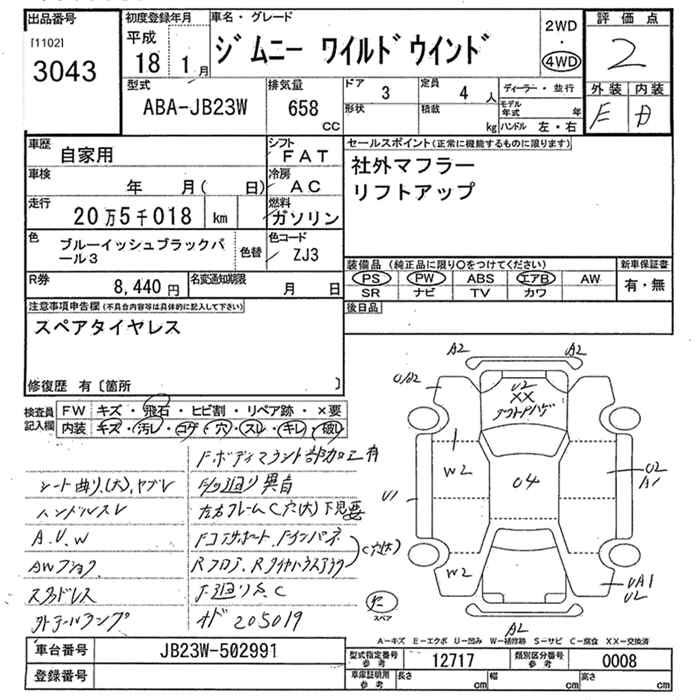 出品番号
[1102]
3043
初度登録年月
平成
18 1月
車名・グレード
ジムニー ワイルドウインド
2WD
・
4WD
評価点
2
外装 内装
E D
型式
ABA-JB23W
排気量
658
CC
ドア
3
形状
定員
4 人
積載
kg
ディーラー・並行
モデル年式 年
ハンドル 左・右
車歴
自家用
シフト
FAT
車検
年 月( 日)
冷房
AC
走行
20万5千018 km
燃料
ガソリン
色
ブルーイッシュブラックパール3
色替
色コード
ZJ3
R券
8,440 円
名変通知期限
月 日
セールスポイント(正常に機能するものに限ります)
社外マフラー
リフトアップ
装備品 (純正品に限り○をつけてください)
PS PW ABS エアB AW
SR ナビ TV カワ
新車保証書
有・無
後日品
注意事項申告欄(不具合内容等は具体的に記入して下さい)
スペアタイヤレス
修復歴 有〔箇所 〕
検査員記入欄
FW キズ・飛石・ヒビ割・リペア跡・×要
内装 キズ・汚レ・コゲ・穴・スレ・キレ・破レ
Fボディマウント部加工有
ハンドルスレ
A.U.W
スタッドレス
外テールランプ
オド 205019
A2 A2
U2
XX
W2
04
U1
U2
A1
W2
UA1
U2
A2
スペア
A－キズ E－エクボ U－凹み W－補修跡 S－サビ C－腐食 XX－交換済
車台番号
JB23W-502991
登録番号
型式指定番号 参考
12717
類別区分番号 参考
0008
車庫証明用 参考
長さ cm
幅 cm
高さ cm